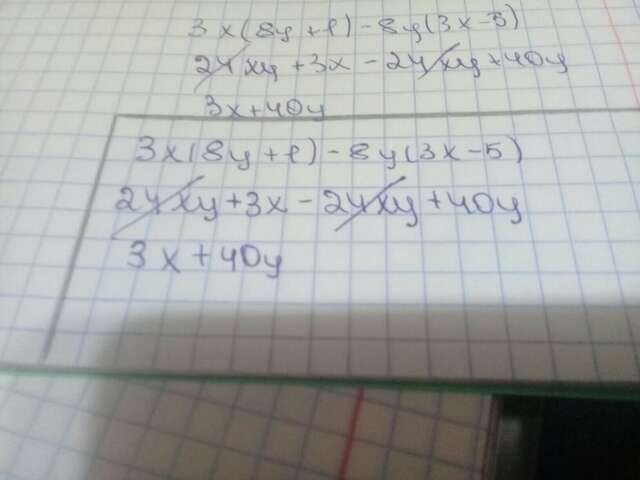 3x(8y+1)-8y(3x-5)
24xy+3x-24xy+40y
3x+40y
3x(8y+1)-8y(3x-5)
24xy+3x-24xy+40y
3x+40y